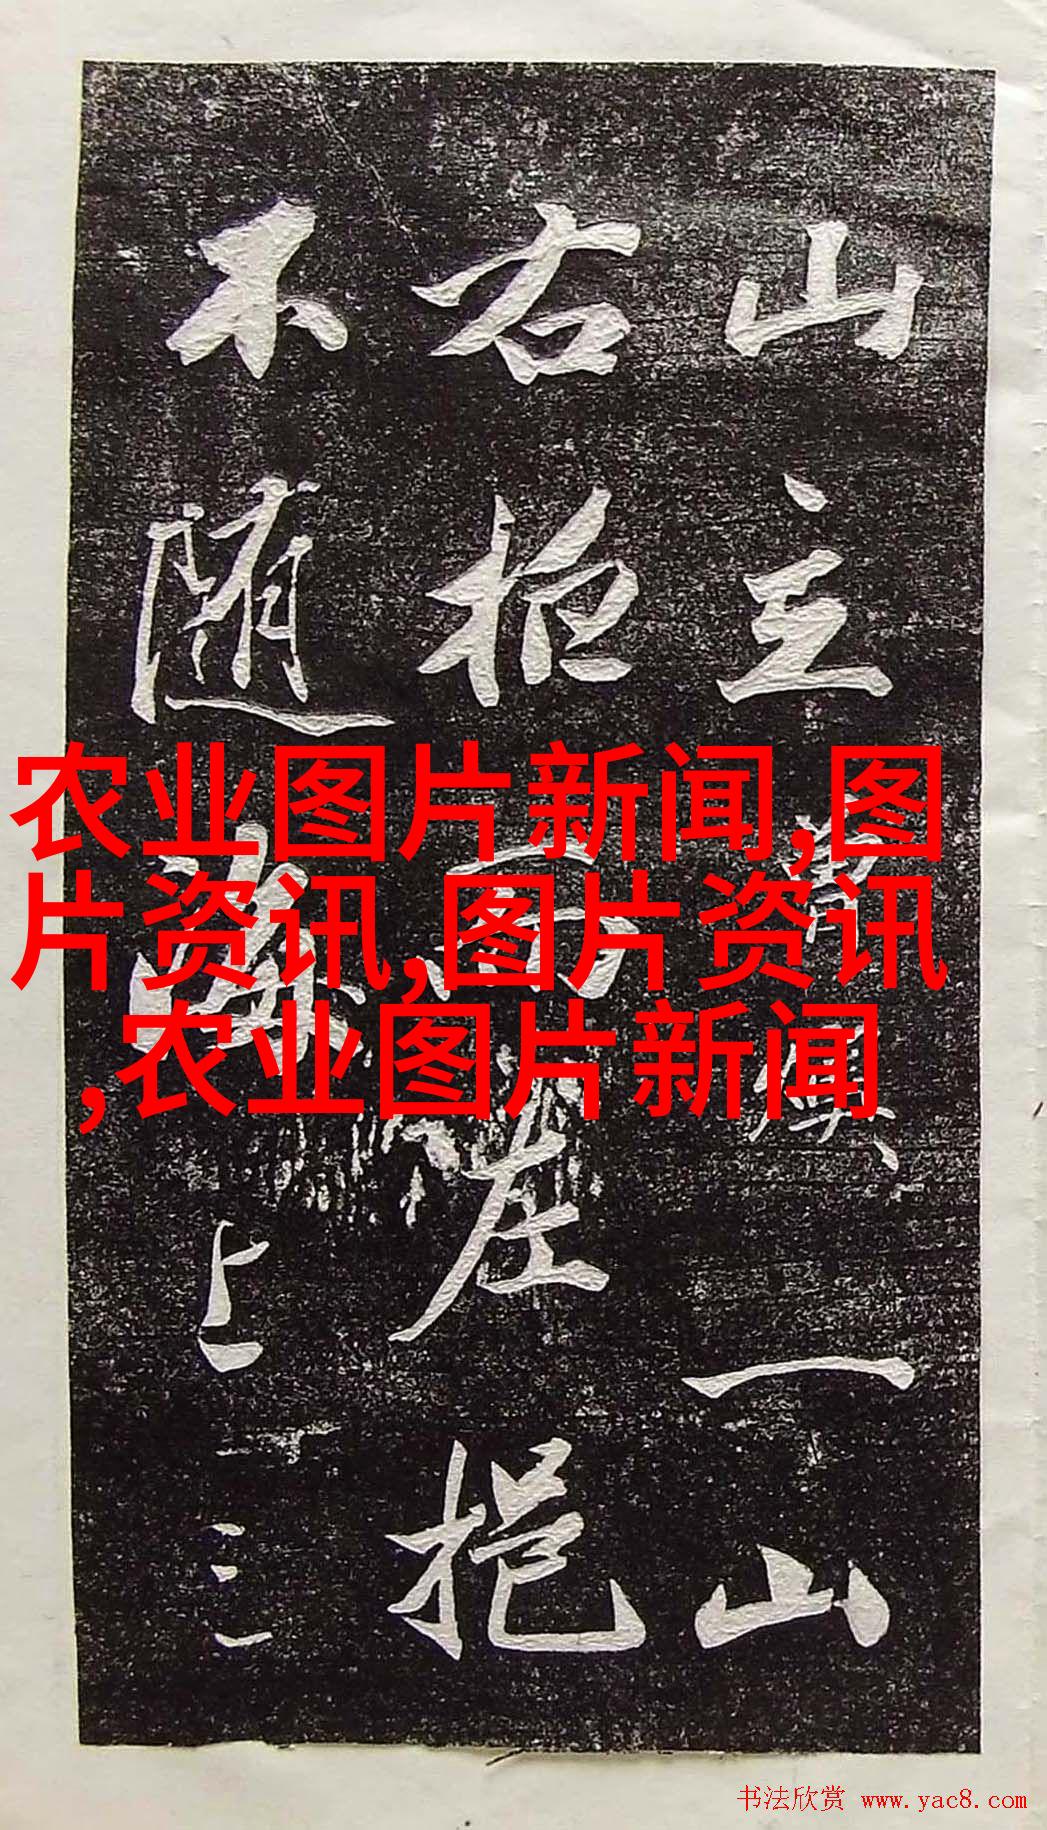 山主一山
右左挹
不随上三
农业图片新闻,图
片资讯,图片资讯
,农业图片新闻
书法欣赏 www.yac8.com